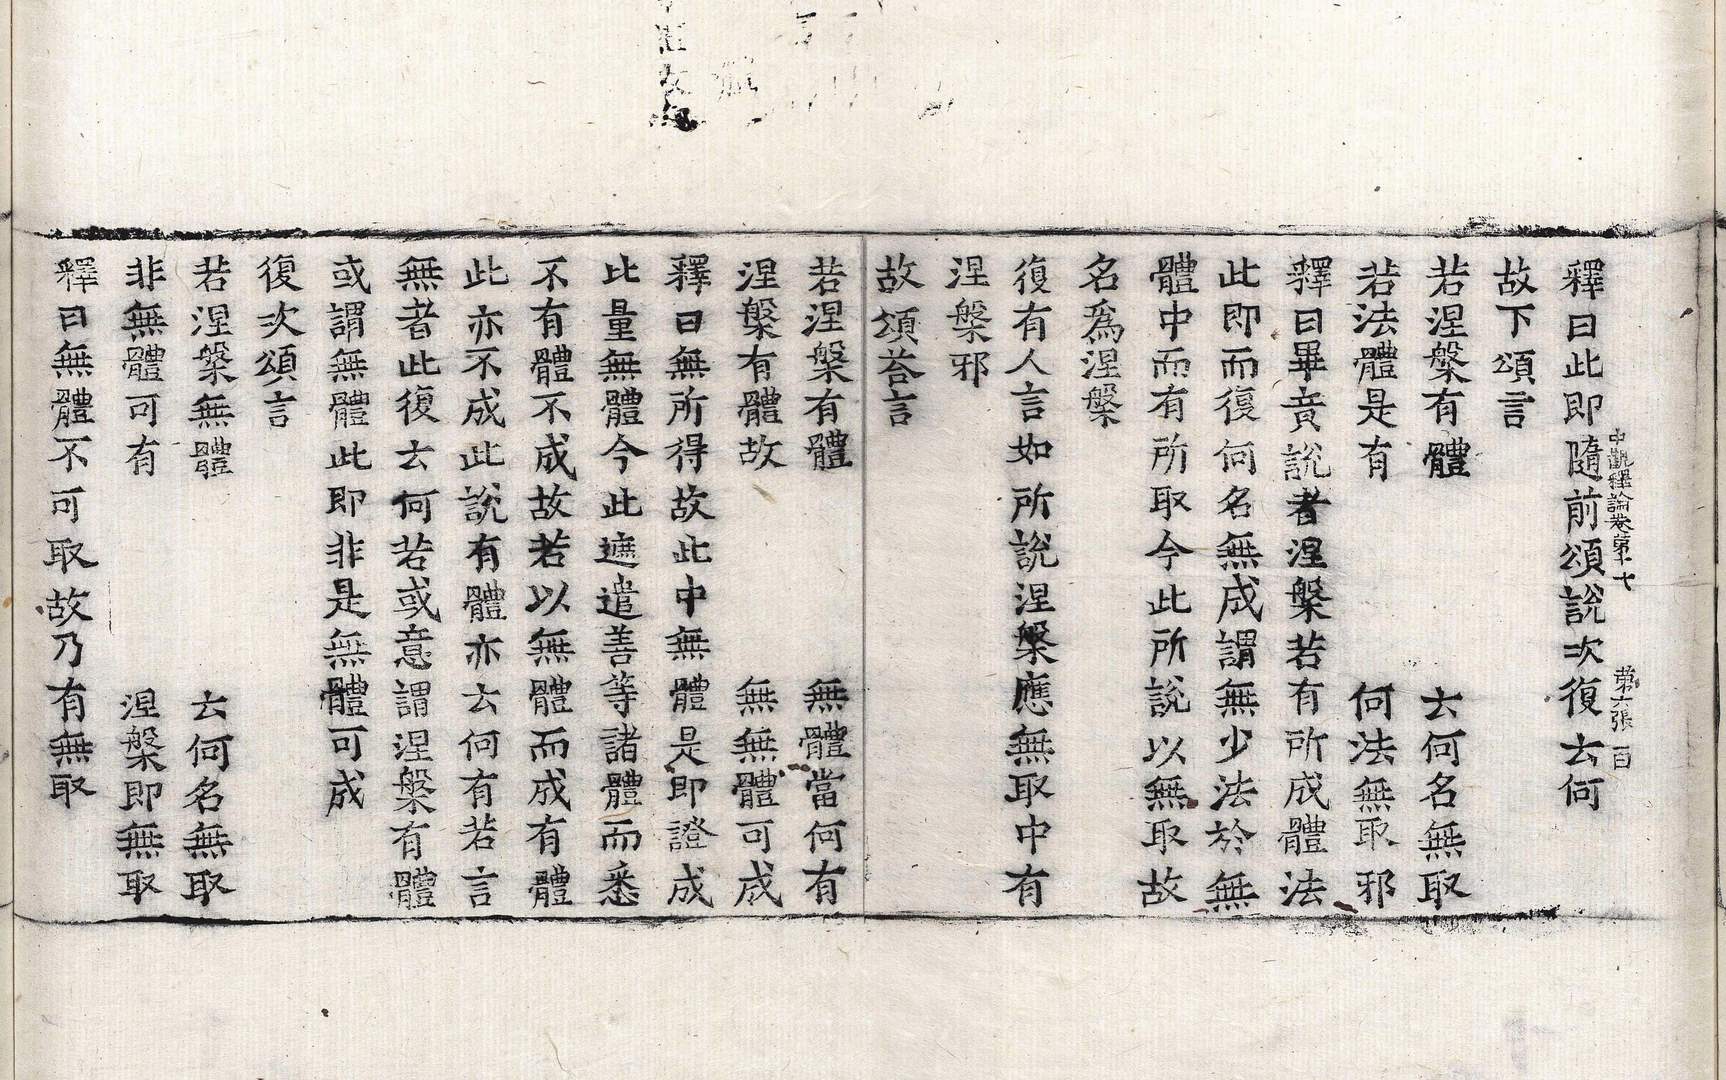 中觀釋論卷第十七 第六張 百
釋曰此即隨前頌說次復云何
故下頌言
若涅槃有體 云何名無取
若法體是有 何法無取邪
釋曰毗婆沙說者涅槃若有所成體法
此即而復何名無成謂無少法於無
體中而有所取今此所說以無取故
名為涅槃
復有人言如所說涅槃應無取中有
涅槃邪
故頌荅言
若涅槃有體 無體當何有
涅槃有體故 無無體可成
釋曰無所得故此中無體是即證成
比量無體今此遮遣善等諸體而悉
不有體不成故若以無體而成有體
此亦不成此說有體亦云何有若言
無者此復云何若或意謂涅槃有體
或謂無體此即非是無體可成
復次頌言
若涅槃無體 云何名無取
非無體可有 涅槃即無取
釋曰無體不可取故乃有無取